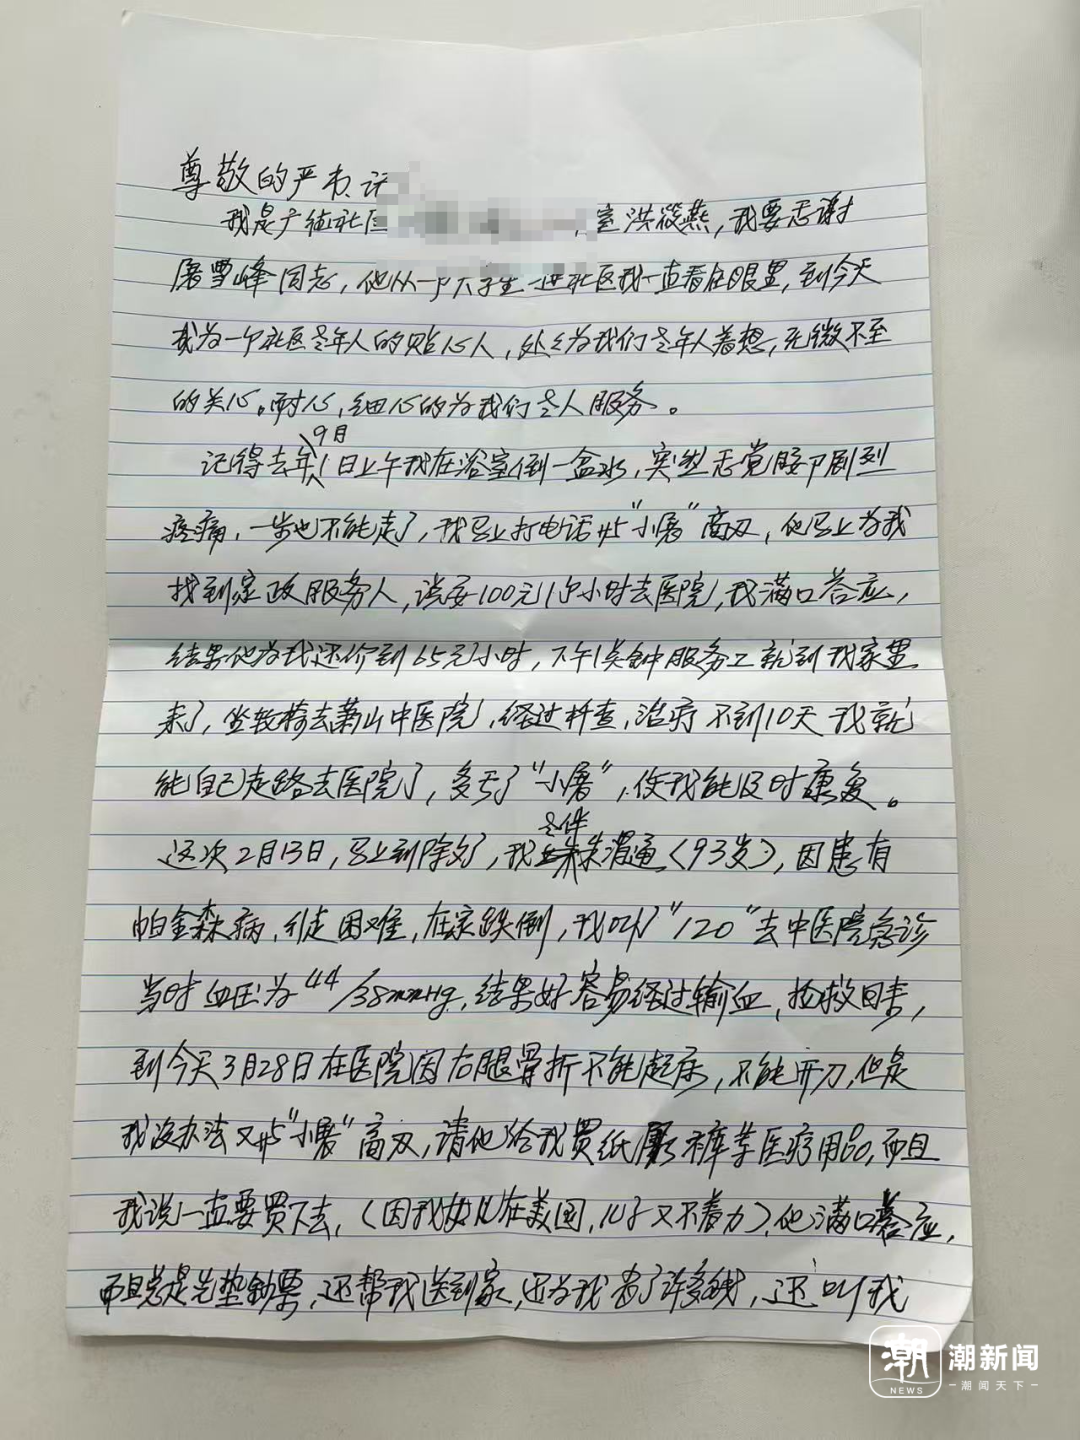 尊敬的严书记
我是广德社区 室洪筱燕，我要感谢
屠雪峰同志，他从一个大学生进社区我一直看在眼里，到今天
成为一个社区老年人的贴心人，处处为我们老年人着想，无微不至
的关心。耐心，细心的为我们老人服务。
记得去年9月1日上午我在浴室倒一盆水，突然感觉腰下剧烈
疼痛，一步也不能走了，我马上打电话与“小屠”商议，他马上为我
找到家政服务人，说要100元1个小时去医院，我满口答应，
结果他为我还价到65元/小时，下午1点钟服务工就到我家里
来了，坐轮椅去萧山中医院，经过检查，治疗不到10天我就
能自己走路去医院了，多亏了“小屠”，使我能及时康复。
这次2月13日，马上到除夕了，我老伴朱渭通（93岁），因患有
帕金森病，行走困难，在家跌倒，我叫“120”去中医院急诊
当时血压为44/38mmHg，结果好容易经过输血，抢救回来，
到今天3月28日在医院因右腿骨折不能起床，不能开刀，但是
我没办法又与“小屠”商议，请他给我买纸尿裤等医疗用品，而且
我说一直要买下去，（因我女儿在美国，儿子又不着力），他满口答应，
而且总是先垫钞票，还帮我送到家，还为我省了许多钱，还叫我
潮新闻
潮 NEWS
潮闻天下